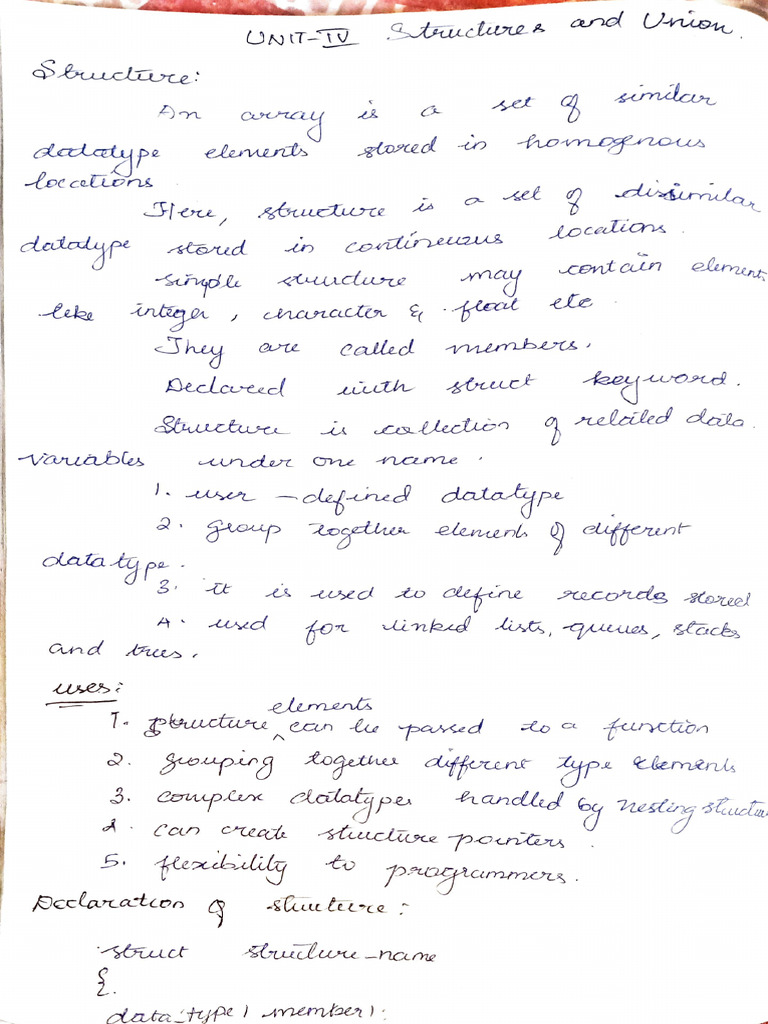 UNIT-IV Structures and Union.
Structure:
An array is a set of similar
datatype elements stored in homogenous
locations
Here, structure is a set of dissimilar
datatype stored in continuous locations.
simple structure may contain elements
like integer, character & float etc.
They are called members.
Declared with struct keyword.
Structure is collection of related data.
variables under one name.
1. user-defined datatype
2. group together elements of different
datatype.
3. it is used to define records stored
4. used for linked lists, queues, stacks
and trees.
uses:
elements
1. structure can be passed to a function
2. grouping together different type elements
3. complex datatypes handled by nesting structure
4. can create structure pointers.
5. flexibility to programmers.
Declaration of structure:
struct structure_name
{
data_type1 member1;